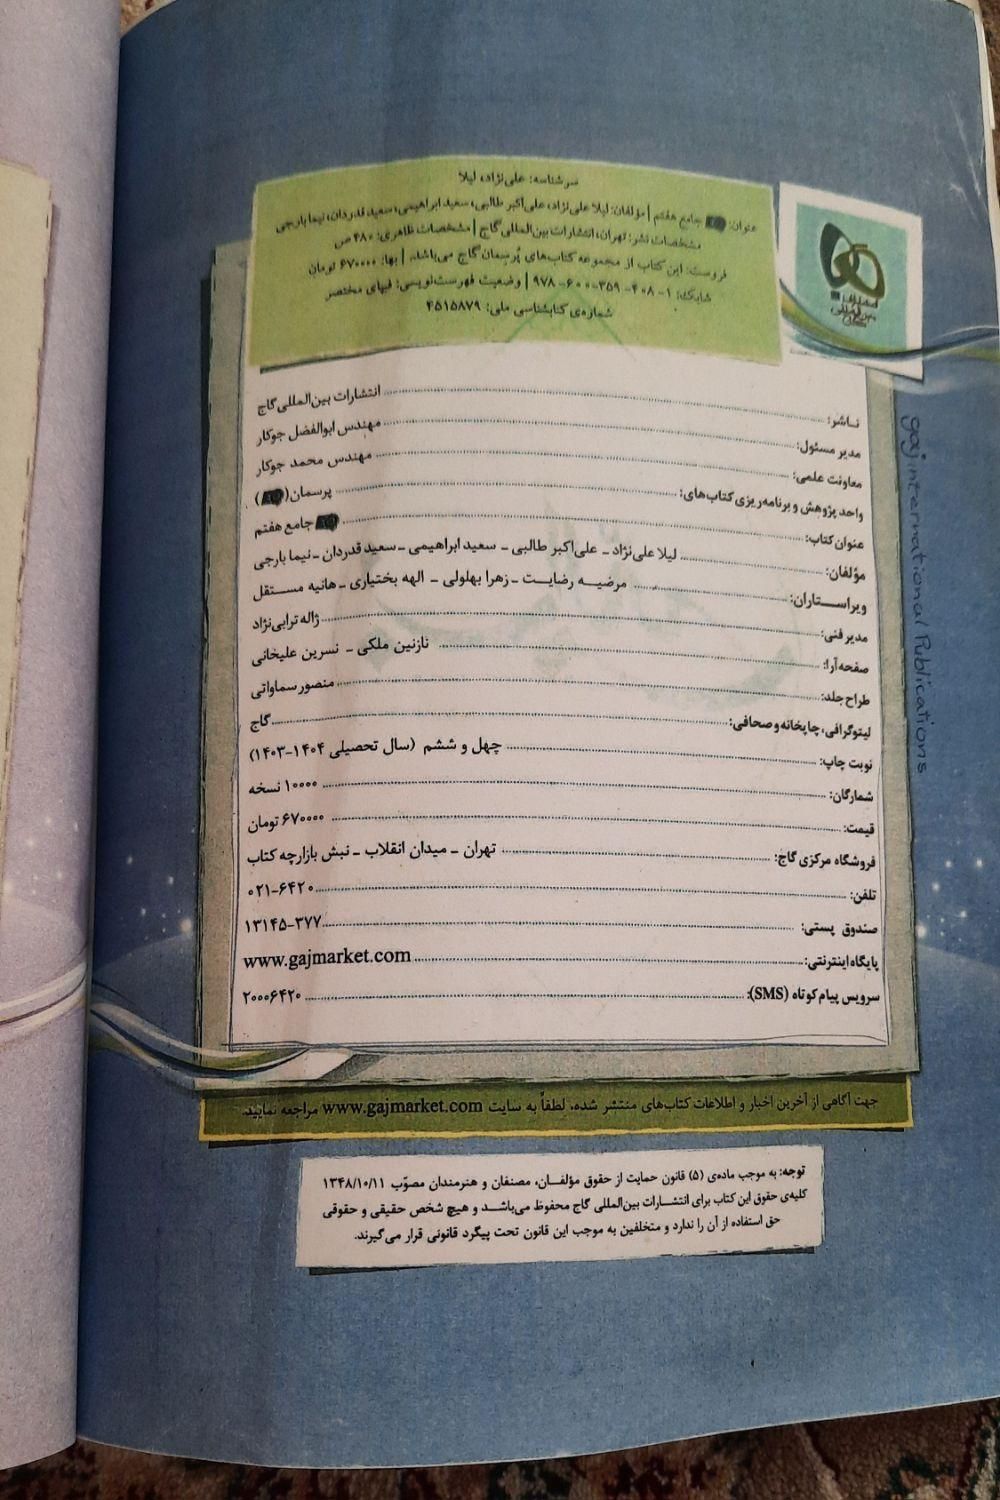 سرشناسه: علی‌نژاد، لیلا
عنوان: جامع هفتم | مؤلفان: لیلا علی‌نژاد، علی‌اکبر طالبی، سعید ابراهیمی، سعید قدردان، نیما بارجی
مشخصات نشر: تهران، انتشارات بین‌المللی گاج | مشخصات ظاهری: ۴۸۰ ص
فروست: این کتاب از مجموعه کتاب‌های پُرسِمان گاج می‌باشد. | بها: ۶۷۰۰۰۰ تومان
شابک: ۱-۴۰۸-۳۵۹-۶۰۰-۹۷۸ | وضعیت فهرست‌نویسی: فیپای مختصر
شماره‌ی کتابشناسی ملی: ۴۵۱۵۸۷۹
انتشارات بین‌المللی گاج
gaj international Publications
ناشر: انتشارات بین‌المللی گاج
مدیر مسئول: مهندس ابوالفضل جوکار
معاونت علمی: مهندس محمد جوکار
واحد پژوهش و برنامه‌ریزی کتاب‌های: پرسمان ( )
عنوان کتاب: جامع هفتم
مؤلفان: لیلا علی‌نژاد ـ علی‌اکبر طالبی ـ سعید ابراهیمی ـ سعید قدردان ـ نیما بارجی
ویراستاران: مرضیه رضایت ـ زهرا بهلولی ـ الهه بختیاری ـ هانیه مستقل
مدیر فنی: ژاله ترابی‌نژاد
صفحه‌آرا: نازنین ملکی ـ نسرین علیخانی
طراح جلد: منصور سماواتی
لیتوگرافی، چاپخانه و صحافی: گاج
نوبت چاپ: چهل و ششم (سال تحصیلی ۱۴۰۴-۱۴۰۳)
شمارگان: ۱۰۰۰۰ نسخه
قیمت: ۶۷۰۰۰۰ تومان
فروشگاه مرکزی گاج: تهران ـ میدان انقلاب ـ نبش بازارچه کتاب
تلفن: ۰۲۱-۶۴۲۰
صندوق پستی: ۱۳۱۴۵-۳۷۷
پایگاه اینترنتی: www.gajmarket.com
سرویس پیام کوتاه (SMS): ۲۰۰۰۶۴۲۰
جهت آگاهی از آخرین اخبار و اطلاعات کتاب‌های منتشر شده، لطفاً به سایت www.gajmarket.com مراجعه نمایید.
توجه: به موجب ماده‌ی (۵) قانون حمایت از حقوق مؤلفان، مصنفان و هنرمندان مصوّب ۱۳۴۸/۱۰/۱۱
کلیه‌ی حقوق این کتاب برای انتشارات بین‌المللی گاج محفوظ می‌باشد و هیچ شخص حقیقی و حقوقی
حق استفاده از آن را ندارد و متخلفین به موجب این قانون تحت پیگرد قانونی قرار می‌گیرند.